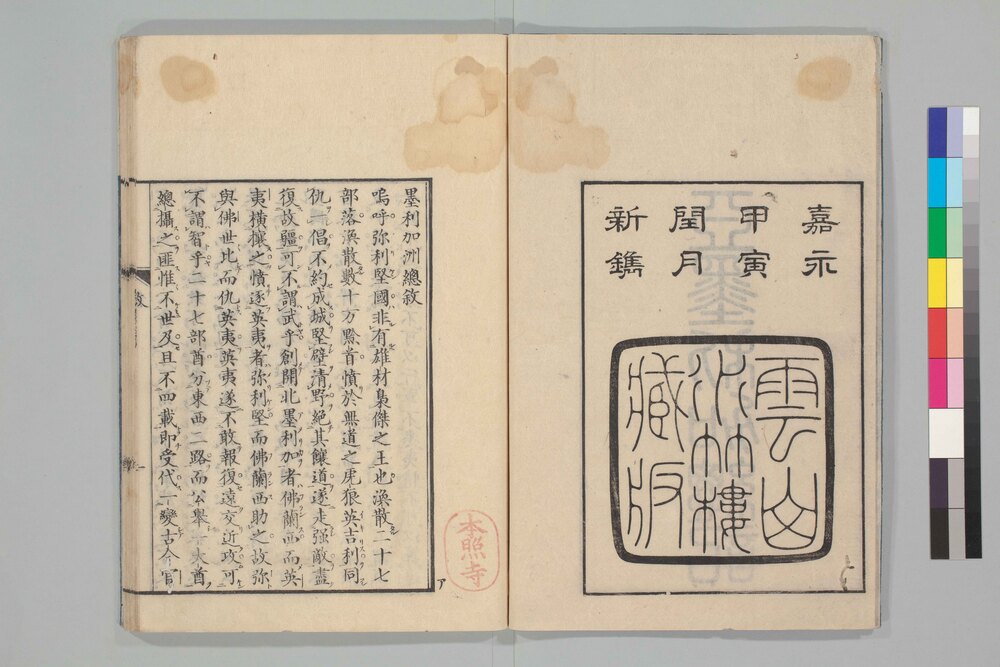 嘉永
甲寅
閏月
新鐫
雲山
小竹樓
藏版
墨利加洲總敘
嗚呼弥利堅國非有雄材梟傑之王也渙散二十七
部落渙散數十万黔首憤於無道之虎狼英吉利同
仇一倡不約成城堅壁清野絕其饟道遂走强敵盡
復故疆可不謂武乎創開北墨利加者佛蘭西而英
夷橫攘之憤逐英夷者弥利堅而佛蘭西助之故弥
與佛世比而仇英夷英夷遂不敢報復遠交近攻可
不謂智乎二十七部酋分東西二路而公舉一大酋
總攝之匪惟不世及且不四載即受代一變古今官
敘
本照寺